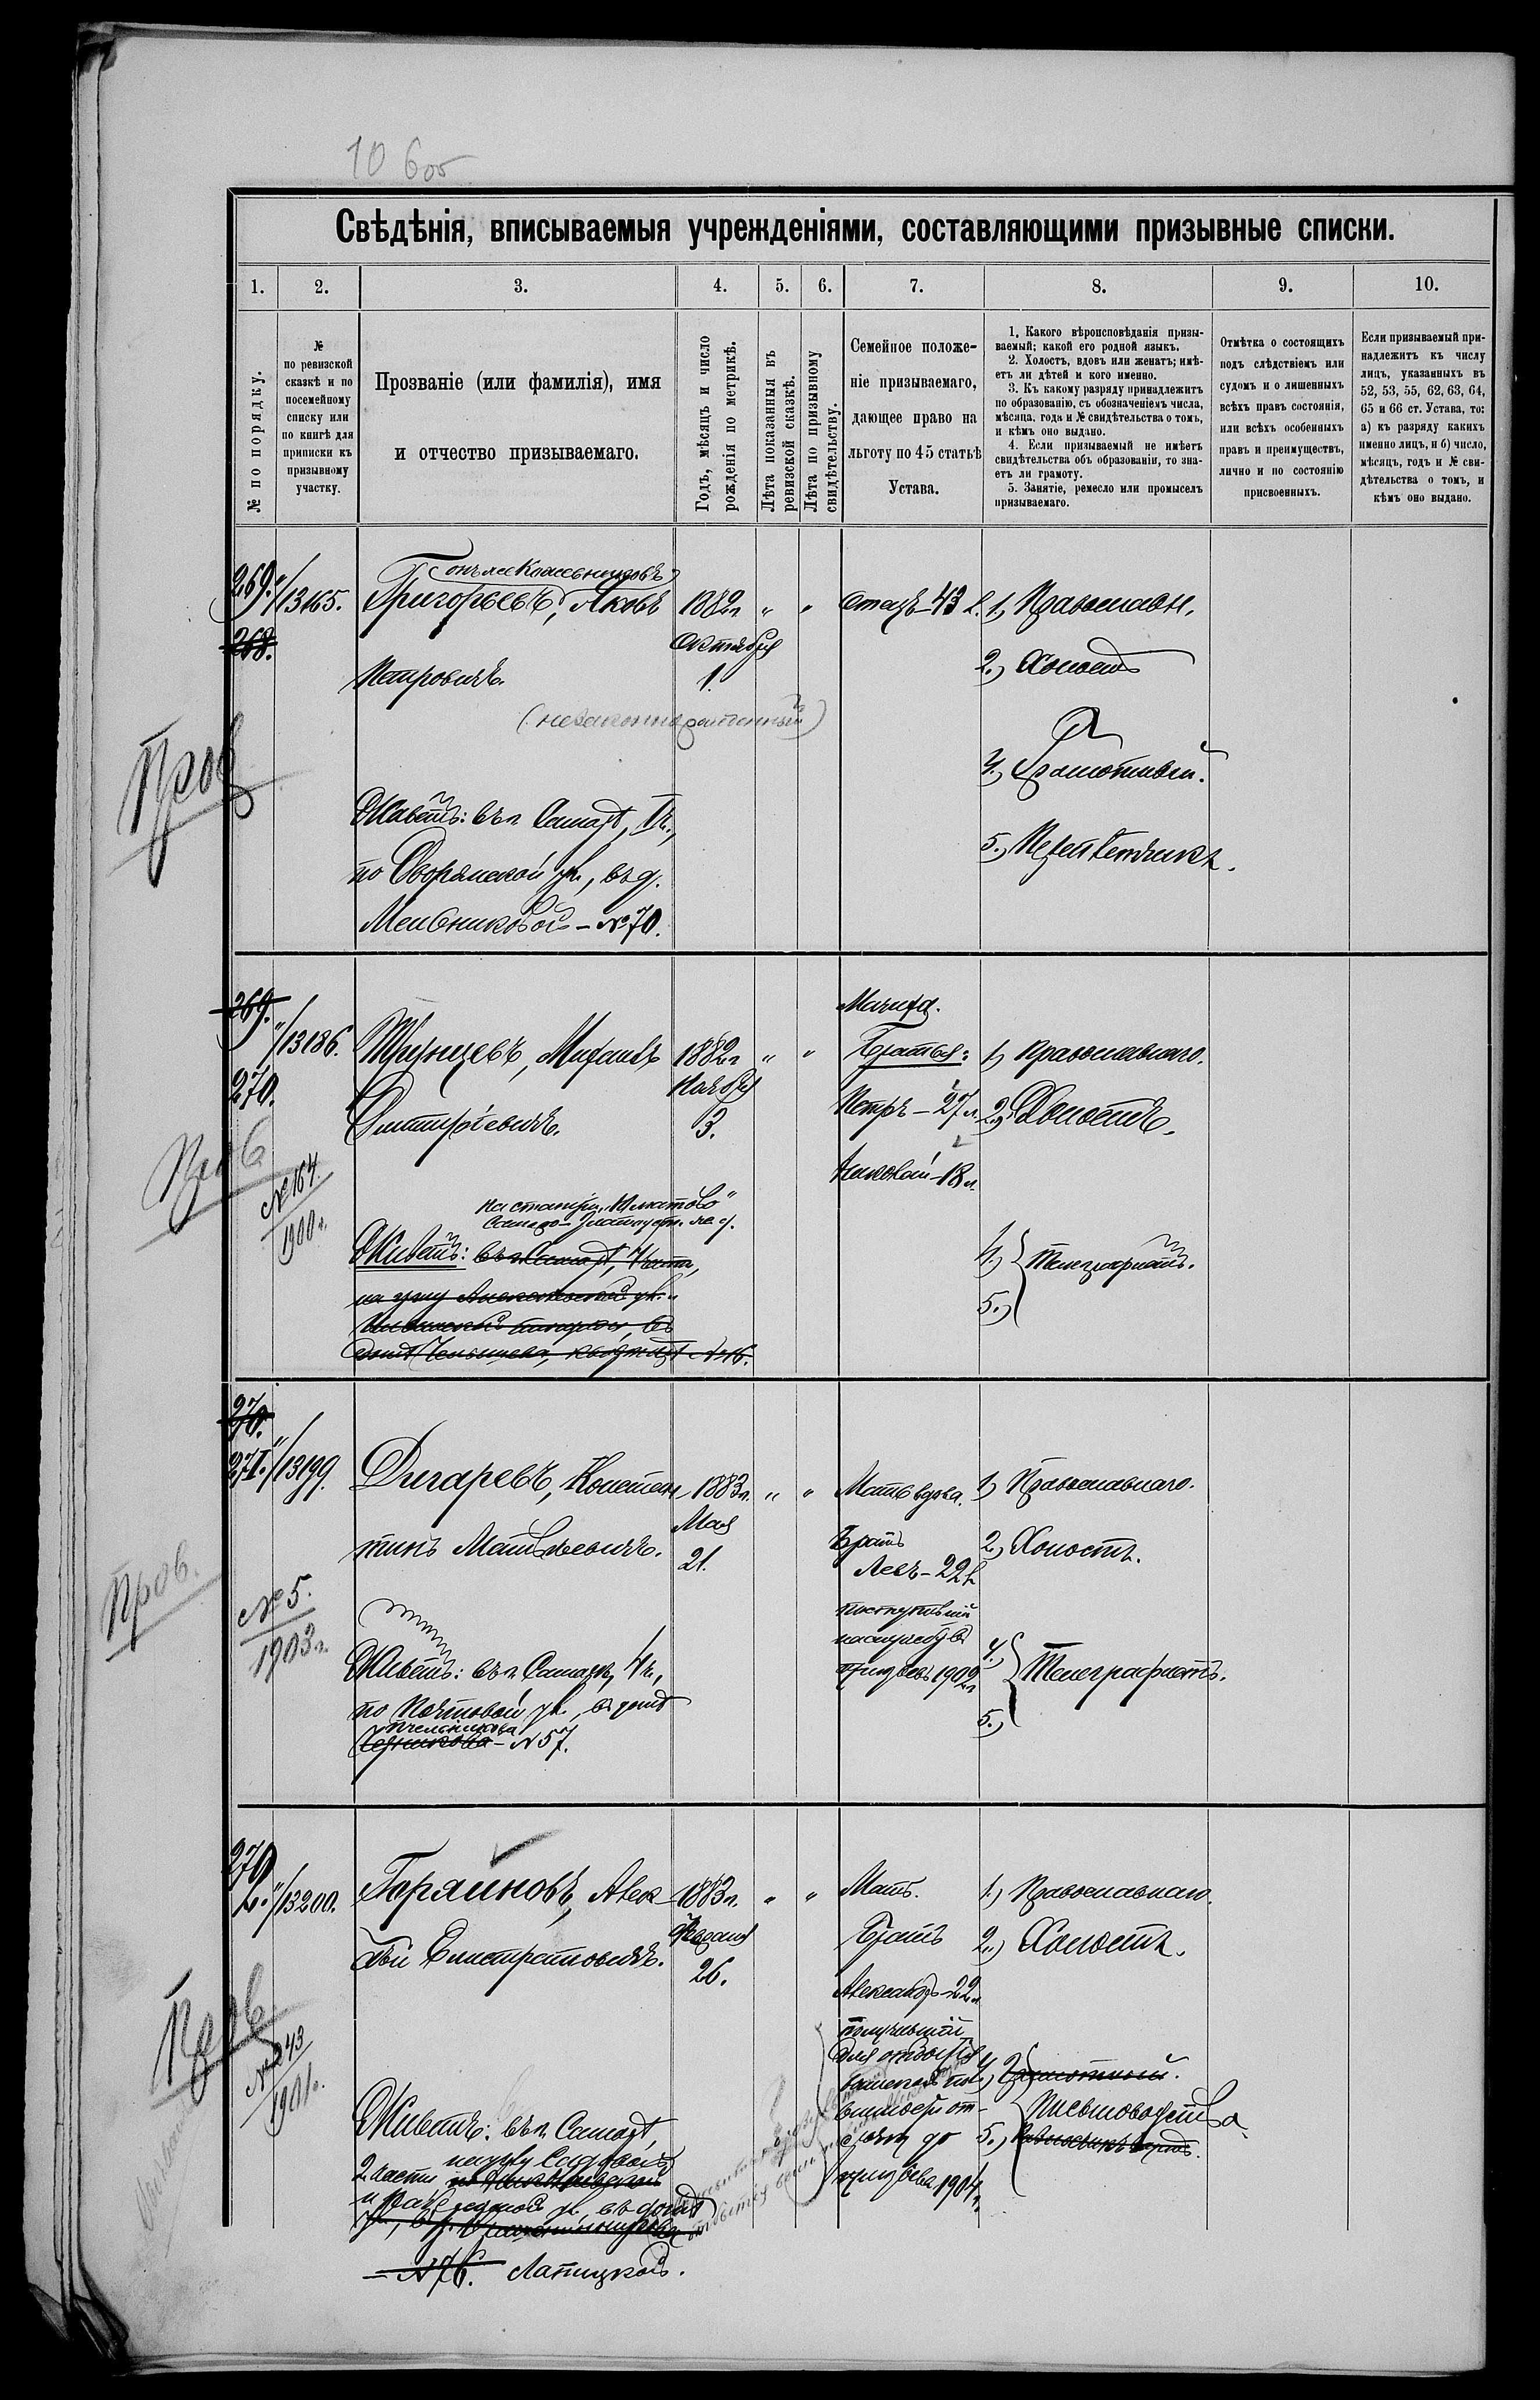 10 605
Свѣдѣнія, вписываемыя учрежденіями, составляющими призывные списки.
1. 2. 3. 4. 5. 6. 7. 8. 9. 10.
№ по порядку.
№
по ревизской
сказкѣ и по
посемейному
списку или
по книгѣ для
приписки къ
призывному
участку.
Прозваніе (или фамилія), имя
и отчество призываемаго.
Годъ, мѣсяцъ и число
рожденія по метрикѣ.
Лѣта показанныя въ
ревизской сказкѣ.
Лѣта по призывному
свидѣтельству.
Семейное положе-
ніе призываемаго,
дающее право на
льготу по 45 статьѣ
Устава.
1. Какого вѣроисповѣданія призы-
ваемый; какой его родной языкъ.
2. Холостъ, вдовъ или женатъ; имѣ-
етъ ли дѣтей и кого именно.
3. Къ какому разряду принадлежитъ
по образованію, съ обозначеніемъ числа,
мѣсяца, года и № свидѣтельства о томъ,
и кѣмъ оно выдано.
4. Если призываемый не имѣетъ
свидѣтельства объ образованіи, то зна-
етъ ли грамоту.
5. Занятіе, ремесло или промыселъ
призываемаго.
Отмѣтка о состоящихъ
подъ слѣдствіемъ или
судомъ и о лишенныхъ
всѣхъ правъ состоянія,
или всѣхъ особенныхъ
правъ и преимуществъ,
лично и по состоянію
присвоенныхъ.
Если призываемый при-
надлежитъ къ числу
лицъ, указанныхъ въ
52, 53, 55, 62, 63, 64,
65 и 66 ст. Устава, то:
а) къ разряду какихъ
именно лицъ, и б) число,
мѣсяцъ, годъ и № сви-
дѣтельства о томъ, и
кѣмъ оно выдано.
онъ же Колесниковъ
269. 13165. Григорьевъ, Яковъ 1882г. " " 1, Православн.
268. Октября
Петровичъ. 1. 2.) Холостъ
(незаконнорожденный)
Пров
4.) Грамотный.
Живетъ: въ г. Самарѣ, 1ч.,
5.) Переплетчикъ.
по Дворянской ул., въ д.
Мельниковой - №70.
269. Мачиха.
13186. Михаилъ 1882г. " " Братья: 1) Православнаго.
270. Ноября
Дмитріевичъ. 3. Петръ - 27 л. 2.) Холостъ.
Пров
№164. Николай - 18 л.
1900г.
на станціи
Самаро-Златоуст. ж. д.
Живетъ: въ г. Самарѣ, 4 части, 4.) Телеграфистъ.
на углу Алексѣевской ул. и
5.)
въ
домѣ Челышева, квартира №16.
270.
271. 13199. Дигаревъ, Констан- 1883г. " " Мать вдова. 1) Православнаго.
Мая
тинъ Матвѣевичъ. 21. Братъ 2) Холостъ.
Левъ - 22 л.
Пров. №5. поступившій
1903г. на службу въ
призывъ 1902г.
Живетъ: въ г. Самарѣ, 4ч., 4.) Телеграфистъ.
по Почтовой ул., въ домѣ
5.)
Пчельникова
№57.
27
2. 13200. Горяйновъ, Алек- 1883г. " " Мать. 1.) Православнаго.
Февраля
сѣй Елистратовичъ. 26. Братъ 2.) Холостъ.
Александръ - 22 л.
Пров получившій
№243 4.) Грамотный.
1901г.
Живетъ: въ г. Самарѣ, Письмоводства
на углу Садовой 5.)
2 части до
ул. въ домѣ призыва 1904г.
№76. Лапицкой.